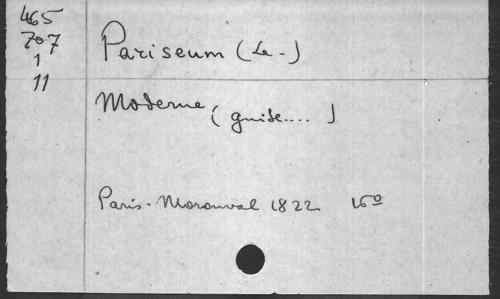 465
707
1
11
Pariseum (Le-)
Moderne (guide....)
Paris. Moronval 1822 16º